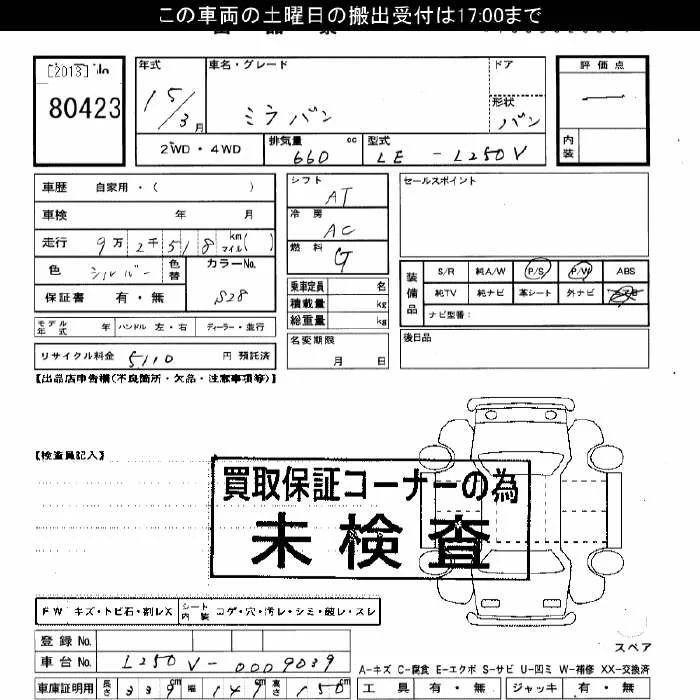 この車両の土曜日の搬出受付は17:00まで
[2013]
80423
年式 車名・グレード ドア 評価点
15/3月 ミラバン 形状 バン
内装
2WD・4WD 排気量 660 cc 型式 LE - L250V
車歴 自家用・( )
車検 年 月
走行 9万2千518 km マイル( )
色 シルバー 色替 カラーNo. S28
保証書 有・無
モデル年式 年 ハンドル 左・右 ディーラー・並行
リサイクル料金 5110 円 預託済
シフト AT
冷房 AC
燃料 G
乗車定員 名
積載量 kg
総重量 kg
名変期限 月 日
セールスポイント
装備品
S/R 純A/W P/S P/W ABS
純TV 純ナビ 革シート 外ナビ
ナビ型番:
後日品
【出品店申告欄(不良箇所・欠品・注意事項等)】
【検査員記入】
買取保証コーナーの為
未検査
FW キズ・トビ石・割レX シート内装 コゲ・穴・汚レ・シミ・破レ・スレ
登録No.
車台No. L250V-0009039
スペア
A-キズ C-腐食 E-エクボ S-サビ U-凹ミ W-補修 XX-交換済
車庫証明用 長さ 339cm 幅 147cm 高さ 150cm
工具 有・無 ジャッキ 有・無